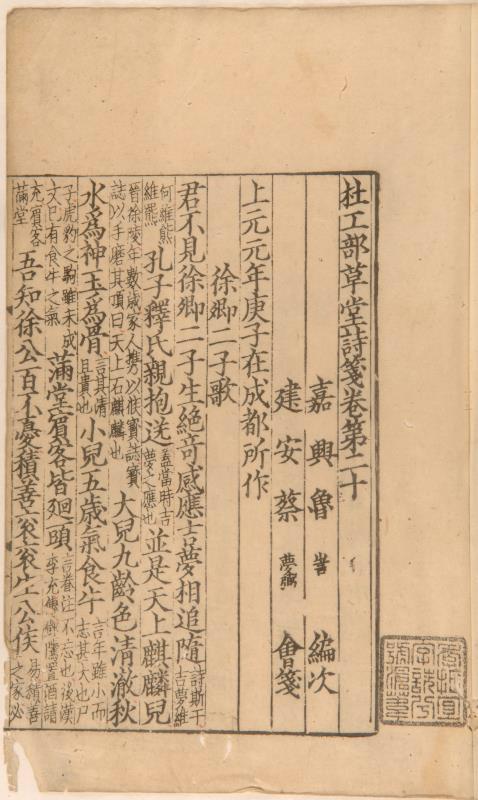 杜工部草堂詩箋卷第二十
嘉興魯訔編次
建安蔡夢弼會箋
上元元年庚子在成都所作
徐卿二子歌
君不見徐卿二子生絕奇感應吉夢相追隨詩斯干吉夢維
何維熊維羆孔子釋氏親抱送蓋當時吉夢之應也並是天上麒麟兒
晉徐陵年數歲家人攜以候寶誌寶誌以手磨其頂曰天上石麒麟也大兒九齡色清澈秋
水為神玉為骨言其清且貴也小兒五歲氣食牛言年雖小而志其大也尸
子虎豹之駒雖未成文已有食牛之氣滿堂賓客皆廻頭言眷注不忘也後漢李充傳置酒請
充賓客滿堂吾知徐公百不憂積善衮衮生公侯易積善之家必